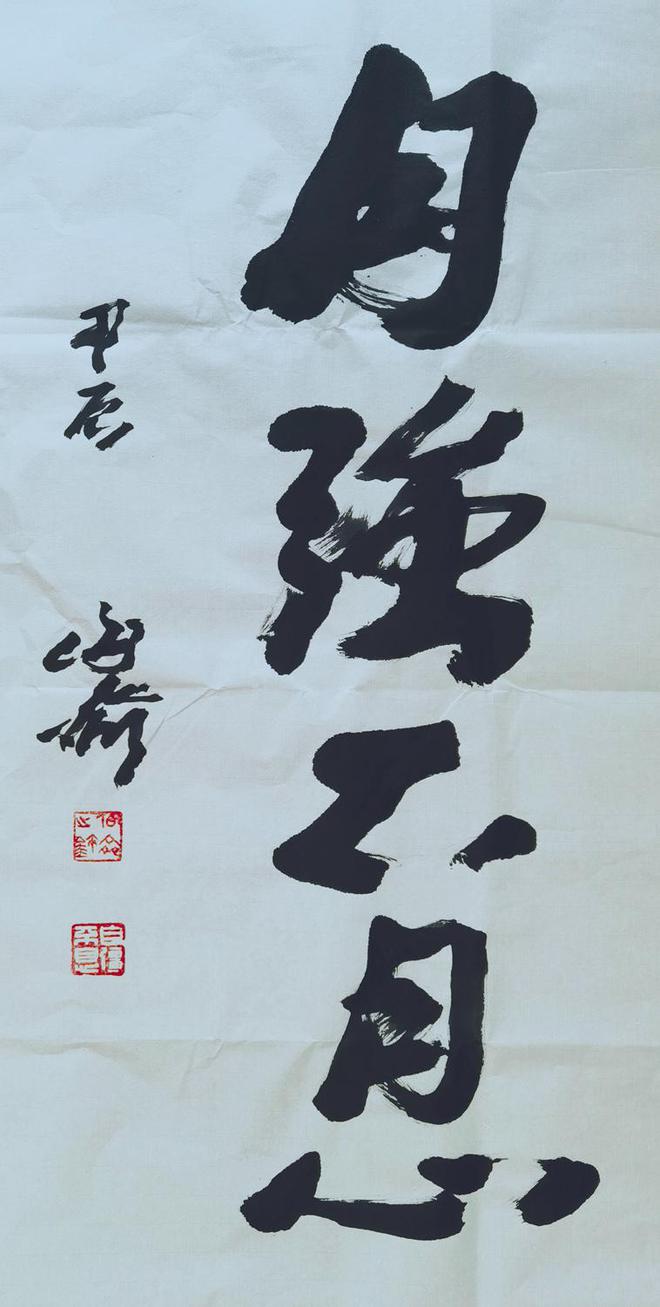 自強不息
甲辰